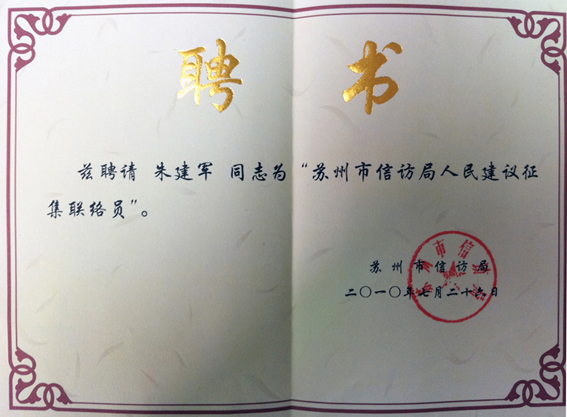 聘 书
兹聘请 朱建军 同志为“苏州市信访局人民建议征
集联络员”。
苏州市信访局
二〇一〇年七月二十六日